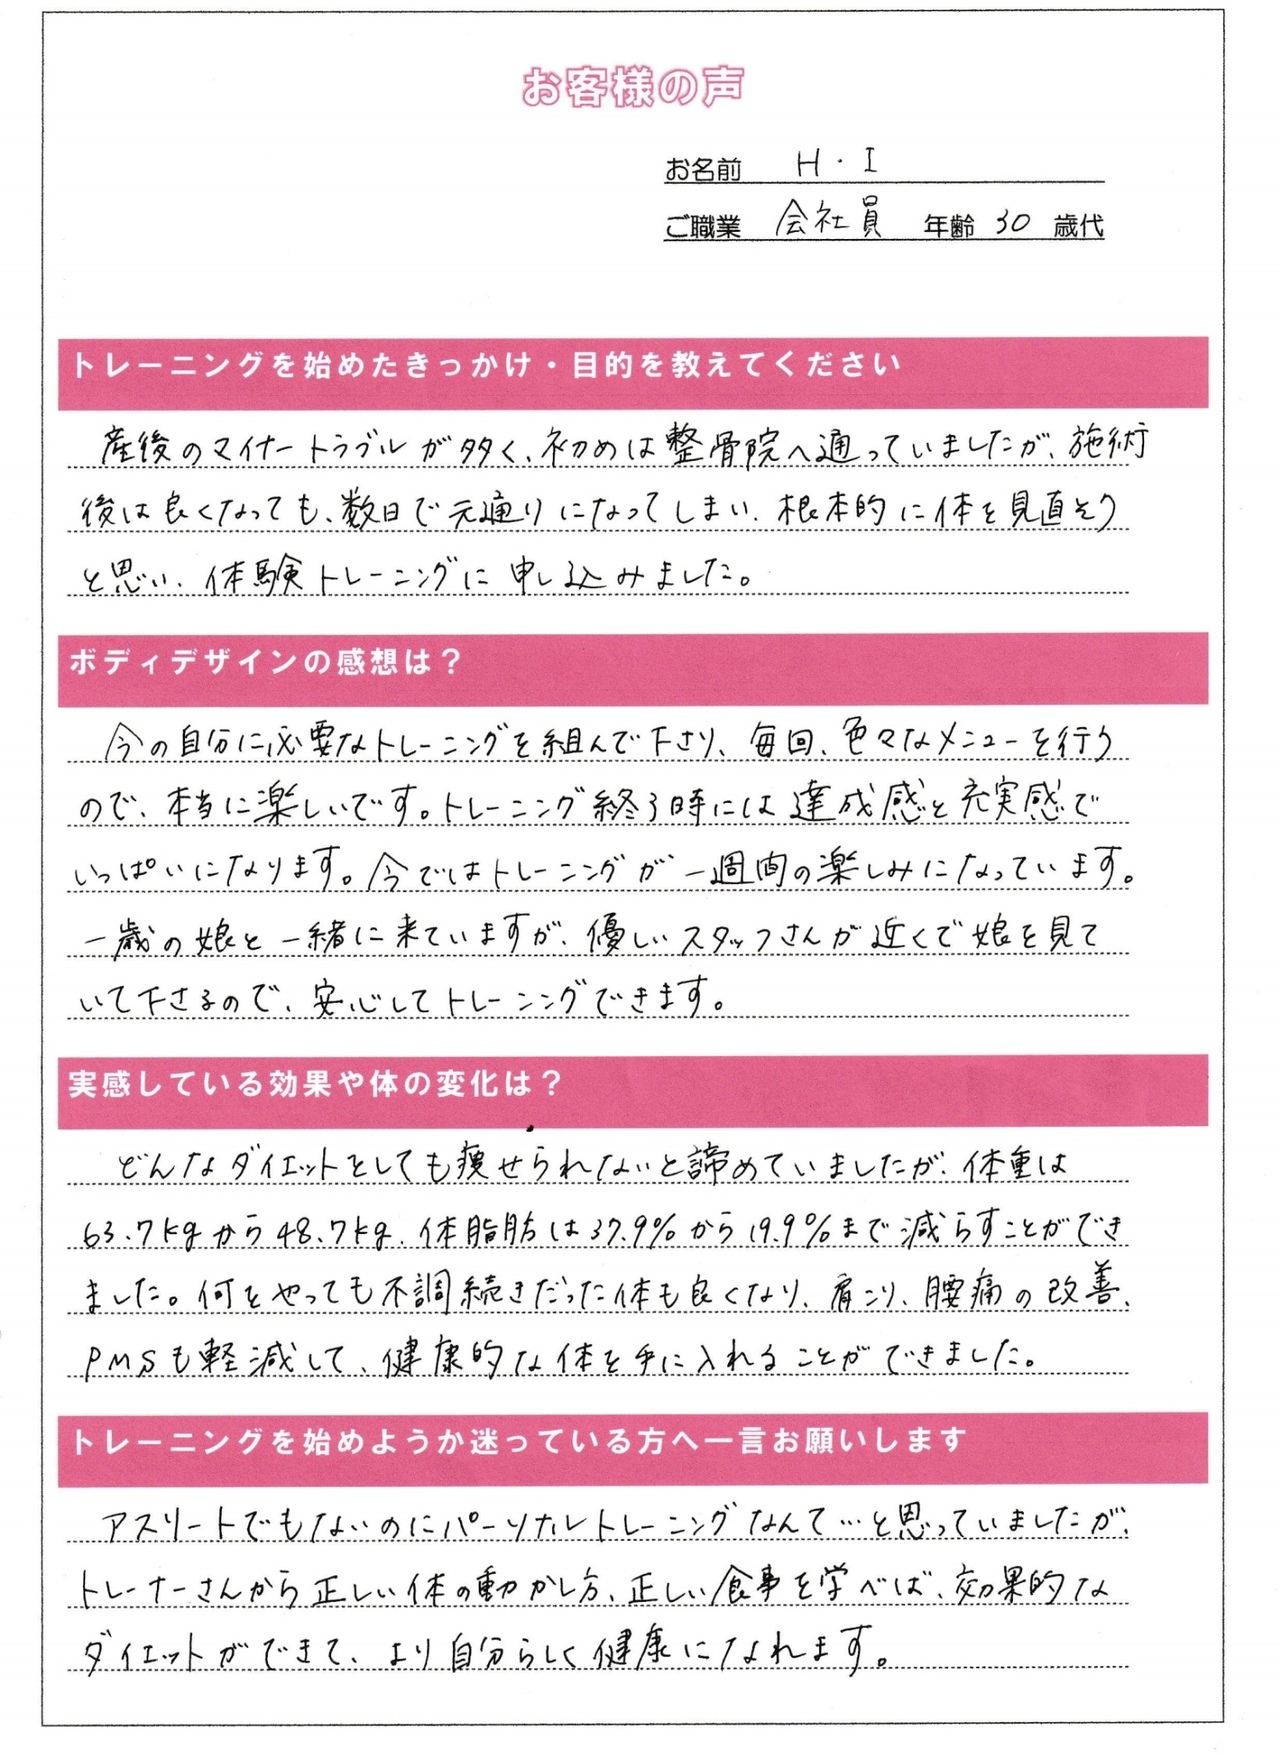 お客様の声
お名前 H・I
ご職業 会社員 年齢 30 歳代
トレーニングを始めたきっかけ・目的を教えてください
産後のマイナートラブルが多く、初めは整骨院へ通っていましたが、施術
後は良くなっても、数日で元通りになってしまい、根本的に体を見直そう
と思い、体験トレーニングに申し込みました。
ボディデザインの感想は？
今の自分に必要なトレーニングを組んで下さり、毎回、色々なメニューを行う
ので、本当に楽しいです。トレーニング終了時には達成感と充実感で
いっぱいになります。今ではトレーニングが一週間の楽しみになっています。
一歳の娘と一緒に来ていますが、優しいスタッフさんが近くで娘を見て
いて下さるので、安心してトレーニングできます。
実感している効果や体の変化は？
どんなダイエットをしても痩せられないと諦めていましたが、体重は
63.7kgから48.7kg、体脂肪は37.9%から19.9%まで減らすことができ
ました。何をやっても不調続きだった体も良くなり、肩こり、腰痛の改善、
PMSも軽減して、健康的な体を手に入れることができました。
トレーニングを始めようか迷っている方へ一言お願いします
アスリートでもないのにパーソナルトレーニングなんて…と思っていましたが、
トレーナーさんから正しい体の動かし方、正しい食事を学べば、効果的な
ダイエットができて、より自分らしく健康になれます。